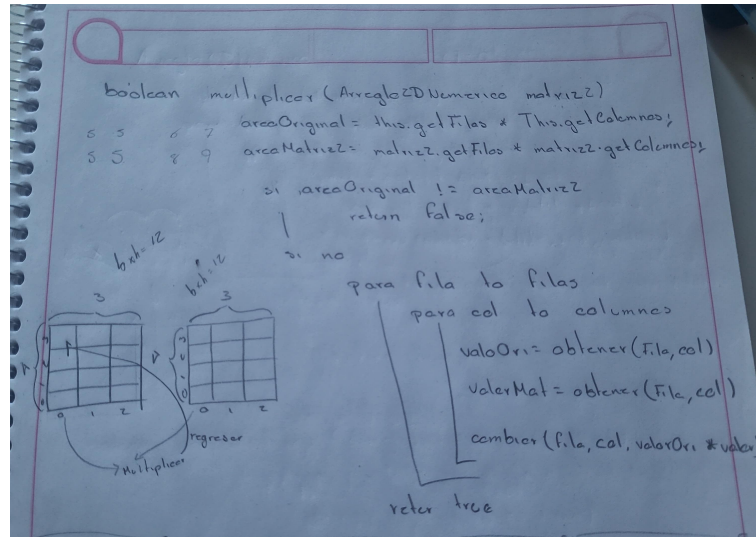 boolean multiplicar (Arreglo2DNumerico matriz2)
areaOriginal = this.getFilas * This.getColumnas;
areaMatriz2 = matriz2.getFilas * matriz2.getColumnas;
6 5 6 7
5 5 8 9
si areaOriginal != areaMatriz2
return false;
si no
para fila to filas
para col to columnas
valoOri = obtener (Fila, col)
valorMat = obtener (Fila, col)
cambiar (fila, col, valorOri * valor
retur true
bxh=12
bxh=12
3
3
4
4
3
2
1
0
3
2
1
0
0 1 2
0 1 2
regresar
Multiplicar